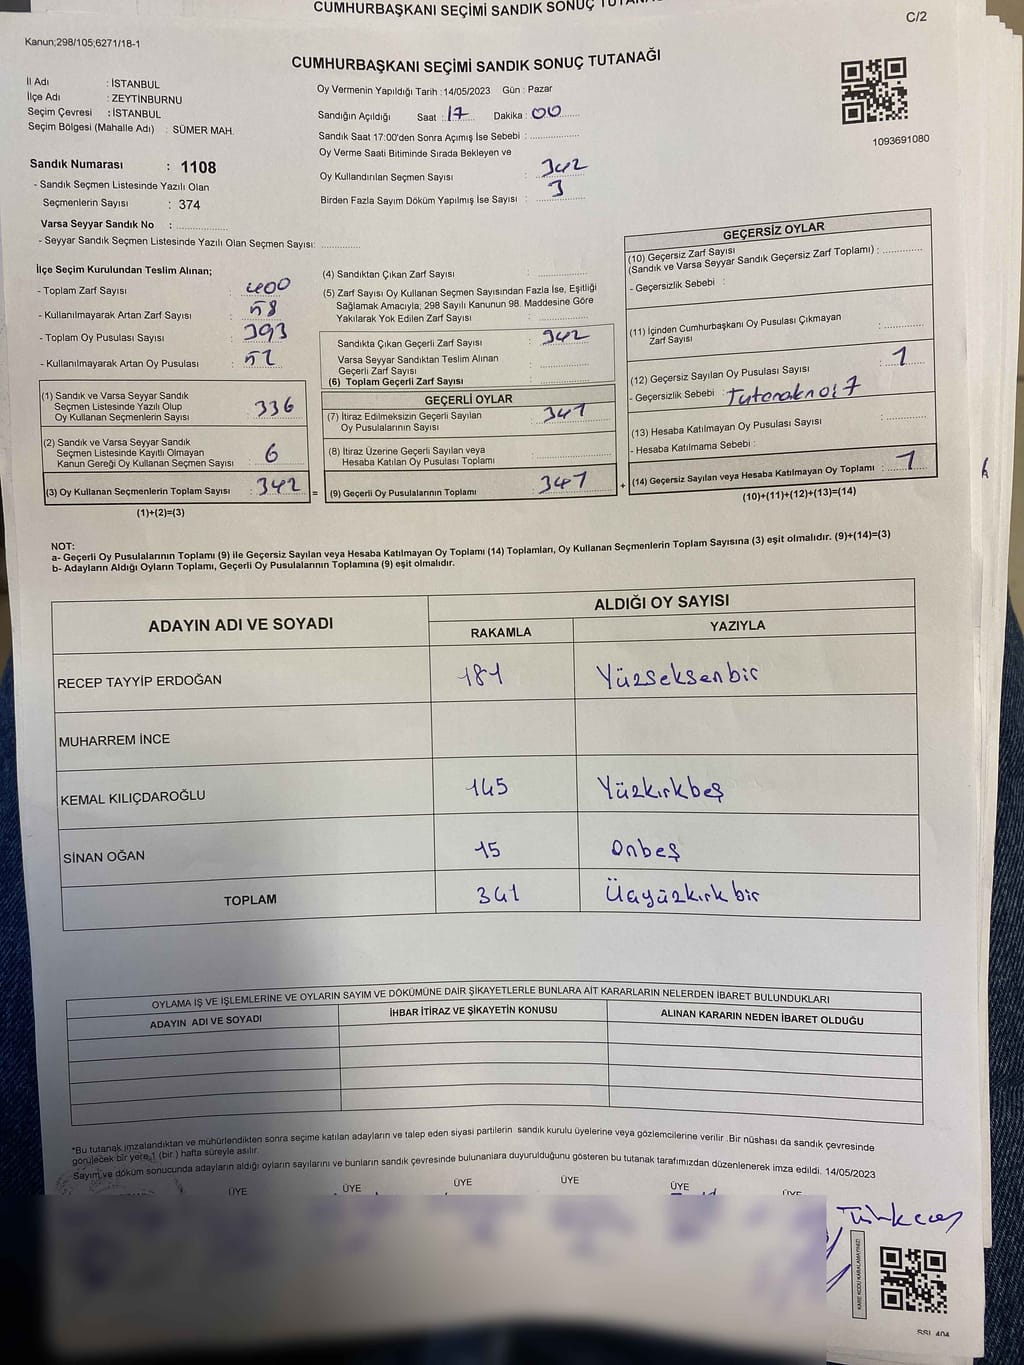 CUMHURBAŞKANI SEÇİMİ SANDIK SONUÇ
C/2
Kanun;298/105;6271/18-1
CUMHURBAŞKANI SEÇİMİ SANDIK SONUÇ TUTANAĞI
İl Adı : İSTANBUL
İlçe Adı : ZEYTİNBURNU
Seçim Çevresi : İSTANBUL
Seçim Bölgesi (Mahalle Adı) : SÜMER MAH.
Sandık Numarası : 1108
- Sandık Seçmen Listesinde Yazılı Olan
Seçmenlerin Sayısı : 374
Varsa Seyyar Sandık No :
- Seyyar Sandık Seçmen Listesinde Yazılı Olan Seçmen Sayısı:
Oy Vermenin Yapıldığı Tarih :14/05/2023 Gün : Pazar
Sandığın Açıldığı Saat : 17 Dakika : 00
Sandık Saat 17:00'den Sonra Açımış İse Sebebi :
Oy Verme Saati Bitiminde Sırada Bekleyen ve
Oy Kullandırılan Seçmen Sayısı : 342
Birden Fazla Sayım Döküm Yapılmış İse Sayısı : 3
1093691080
İlçe Seçim Kurulundan Teslim Alınan;
- Toplam Zarf Sayısı : 400
- Kullanılmayarak Artan Zarf Sayısı : 58
- Toplam Oy Pusulası Sayısı : 393
- Kullanılmayarak Artan Oy Pusulası :
(1) Sandık ve Varsa Seyyar Sandık
Seçmen Listesinde Yazılı Olup
Oy Kullanan Seçmenlerin Sayısı : 336
(2) Sandık ve Varsa Seyyar Sandık
Seçmen Listesinde Kayıtlı Olmayan
Kanun Gereği Oy Kullanan Seçmen Sayısı : 6
(3) Oy Kullanan Seçmenlerin Toplam Sayısı : 342 =
(1)+(2)=(3)
(4) Sandıktan Çıkan Zarf Sayısı :
(5) Zarf Sayısı Oy Kullanan Seçmen Sayısından Fazla İse, Eşitliği
Sağlamak Amacıyla; 298 Sayılı Kanunun 98. Maddesine Göre
Yakılarak Yok Edilen Zarf Sayısı :
Sandıkta Çıkan Geçerli Zarf Sayısı : 342
Varsa Seyyar Sandıktan Teslim Alınan
Geçerli Zarf Sayısı :
(6) Toplam Geçerli Zarf Sayısı :
GEÇERLİ OYLAR
(7) İtiraz Edilmeksizin Geçerli Sayılan
Oy Pusulalarının Sayısı : 341
(8) İtiraz Üzerine Geçerli Sayılan veya
Hesaba Katılan Oy Pusulası Toplamı :
(9) Geçerli Oy Pusulalarının Toplamı : 341 +
GEÇERSİZ OYLAR
(10) Geçersiz Zarf Sayısı
(Sandık ve Varsa Seyyar Sandık Geçersiz Zarf Toplamı) :
- Geçersizlik Sebebi :
(11) İçinden Cumhurbaşkanı Oy Pusulası Çıkmayan
Zarf Sayısı :
(12) Geçersiz Sayılan Oy Pusulası Sayısı : 1
- Geçersizlik Sebebi : Tutanak no: 7
(13) Hesaba Katılmayan Oy Pusulası Sayısı :
- Hesaba Katılmama Sebebi :
(14) Geçersiz Sayılan veya Hesaba Katılmayan Oy Toplamı : 1
(10)+(11)+(12)+(13)=(14)
NOT:
a- Geçerli Oy Pusulalarının Toplamı (9) ile Geçersiz Sayılan veya Hesaba Katılmayan Oy Toplamı (14) Toplamları, Oy Kullanan Seçmenlerin Toplam Sayısına (3) eşit olmalıdır. (9)+(14)=(3)
b- Adayların Aldığı Oyların Toplamı, Geçerli Oy Pusulalarının Toplamına (9) eşit olmalıdır.
ADAYIN ADI VE SOYADI ALDIĞI OY SAYISI
RAKAMLA YAZIYLA
RECEP TAYYİP ERDOĞAN 181 Yüzseksenbir
MUHARREM İNCE
KEMAL KILIÇDAROĞLU 145 Yüzkırkbeş
SİNAN OĞAN 15 Onbeş
TOPLAM 341 Üçyüzkırkbir
OYLAMA İŞ VE İŞLEMLERİNE VE OYLARIN SAYIM VE DÖKÜMÜNE DAİR ŞİKAYETLERLE BUNLARA AİT KARARLARIN NELERDEN İBARET BULUNDUKLARI
ADAYIN ADI VE SOYADI İHBAR İTİRAZ VE ŞİKAYETİN KONUSU ALINAN KARARIN NEDEN İBARET OLDUĞU
*Bu tutanak imzalandıktan ve mühürlendikten sonra seçime katılan adayların ve talep eden siyasi partilerin sandık kurulu üyelerine veya gözlemcilerine verilir .Bir nüshası da sandık çevresinde
görülecek bir yere 1 (bir ) hafta süreyle asılır.
Sayım ve döküm sonucunda adayların aldığı oyların sayılarını ve bunların sandık çevresinde bulunanlara duyurulduğunu gösteren bu tutanak tarafımızdan düzenlenerek imza edildi. 14/05/2023
ÜYE ÜYE ÜYE ÜYE ÜYE ÜYE
KARE KODU KARALAMAYINIZ!